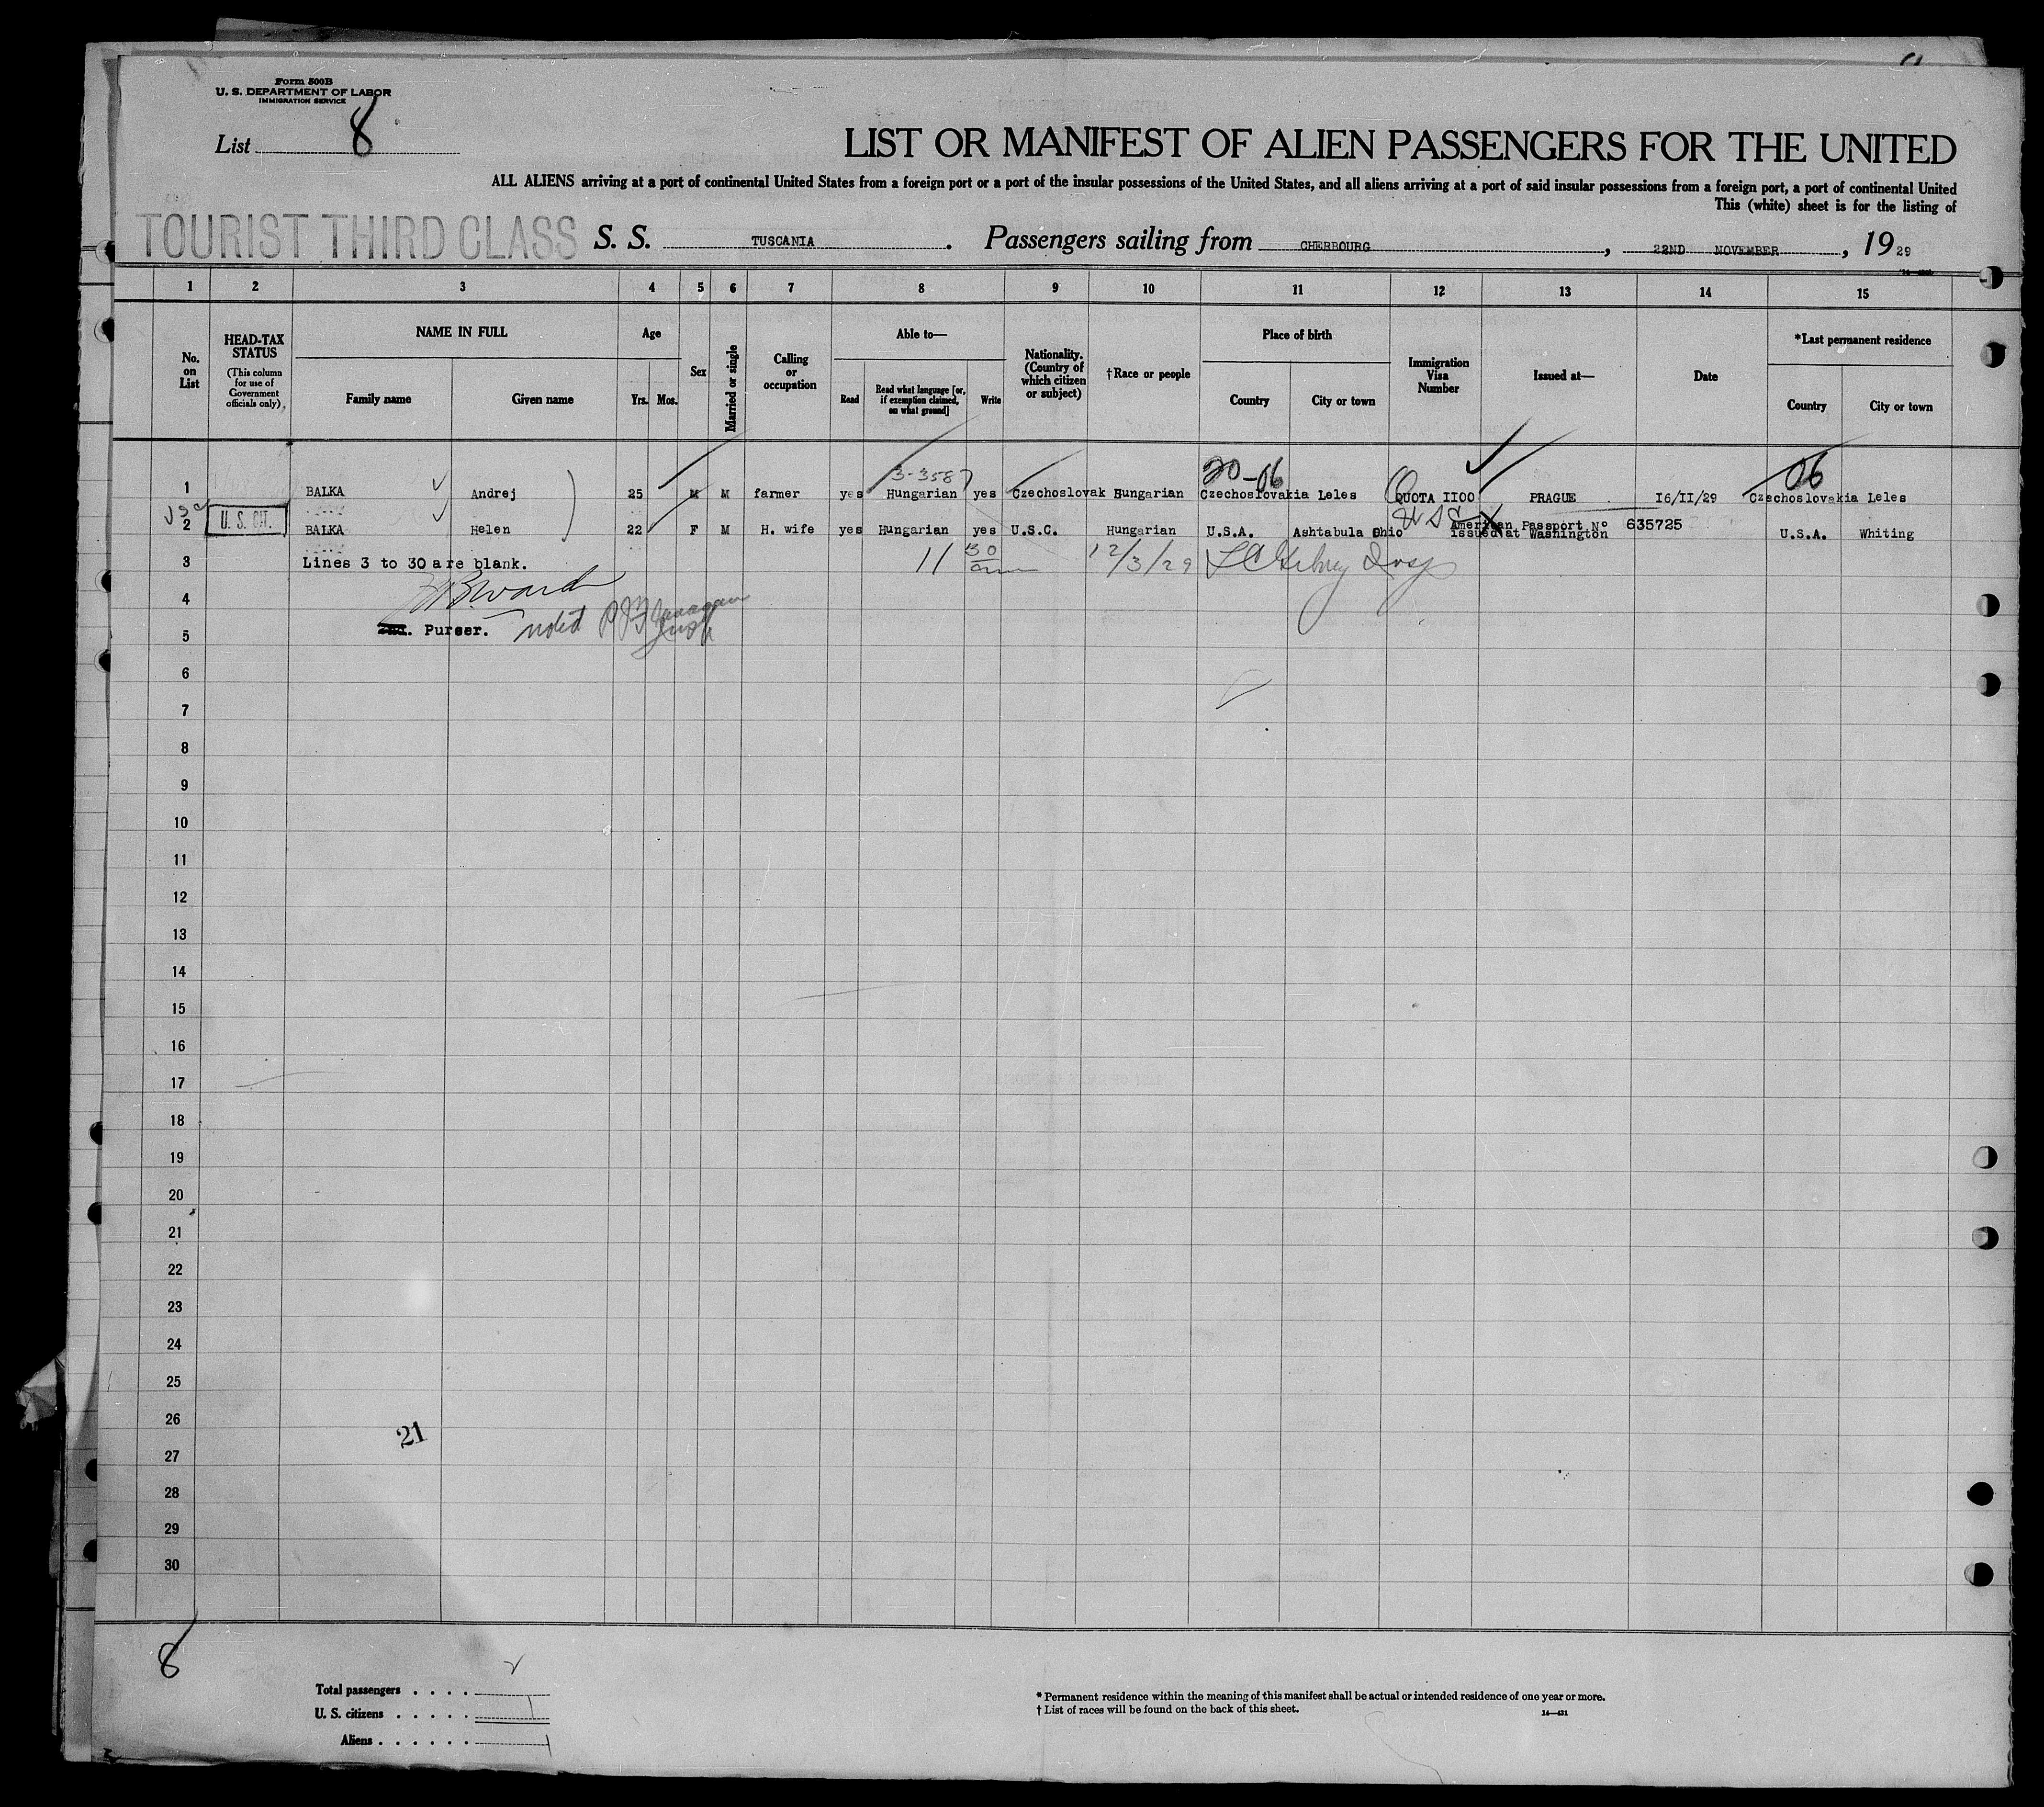 Form 500B
U. S. DEPARTMENT OF LABOR
IMMIGRATION SERVICE
List 8
LIST OR MANIFEST OF ALIEN PASSENGERS FOR THE UNITED
ALL ALIENS arriving at a port of continental United States from a foreign port or a port of the insular possessions of the United States, and all aliens arriving at a port of said insular possessions from a foreign port, a port of continental United
This (white) sheet is for the listing of
TOURIST THIRD CLASS S. S. TUSCANIA. Passengers sailing from CHERBOURG, 22ND NOVEMBER, 1929
1 2 3 4 5 6 7 8 9 10 11 12 13 14 15
No. on List
HEAD-TAX STATUS (This column for use of Government officials only)
NAME IN FULL
Family name Given name
Age
Yrs. Mos.
Sex
Married or single
Calling or occupation
Able to—
Read Read what language [or, if exemption claimed, on what ground] Write
Nationality. (Country of which citizen or subject)
†Race or people
Place of birth
Country City or town
Immigration Visa Number
Issued at—
Date
*Last permanent residence
Country City or town
3-3587 20-06 06
1 BALKA Andrej 25 M M farmer yes Hungarian yes Czechoslovak Hungarian Czechoslovakia Leles QUOTA II00 PRAGUE 16/II/29 Czechoslovakia Leles
2 U. S. CIT. BALKA Helen 22 F M H. wife yes Hungarian yes U.S.C. Hungarian U.S.A. Ashtabula Ohio USC American Passport No 635725 issued at Washington U.S.A. Whiting
3 Lines 3 to 30 are blank. 11 30 am 12/3/29
4
5 2nd. Purser. noted
6
7
8
9
10
11
12
13
14
15
16
17
18
19
20
21
22
23
24
25
26
21
27
28
29
30
8
Total passengers . . . . 2
U. S. citizens . . . . . 1
Aliens . . . . . . 1
* Permanent residence within the meaning of this manifest shall be actual or intended residence of one year or more.
† List of races will be found on the back of this sheet.
14—431